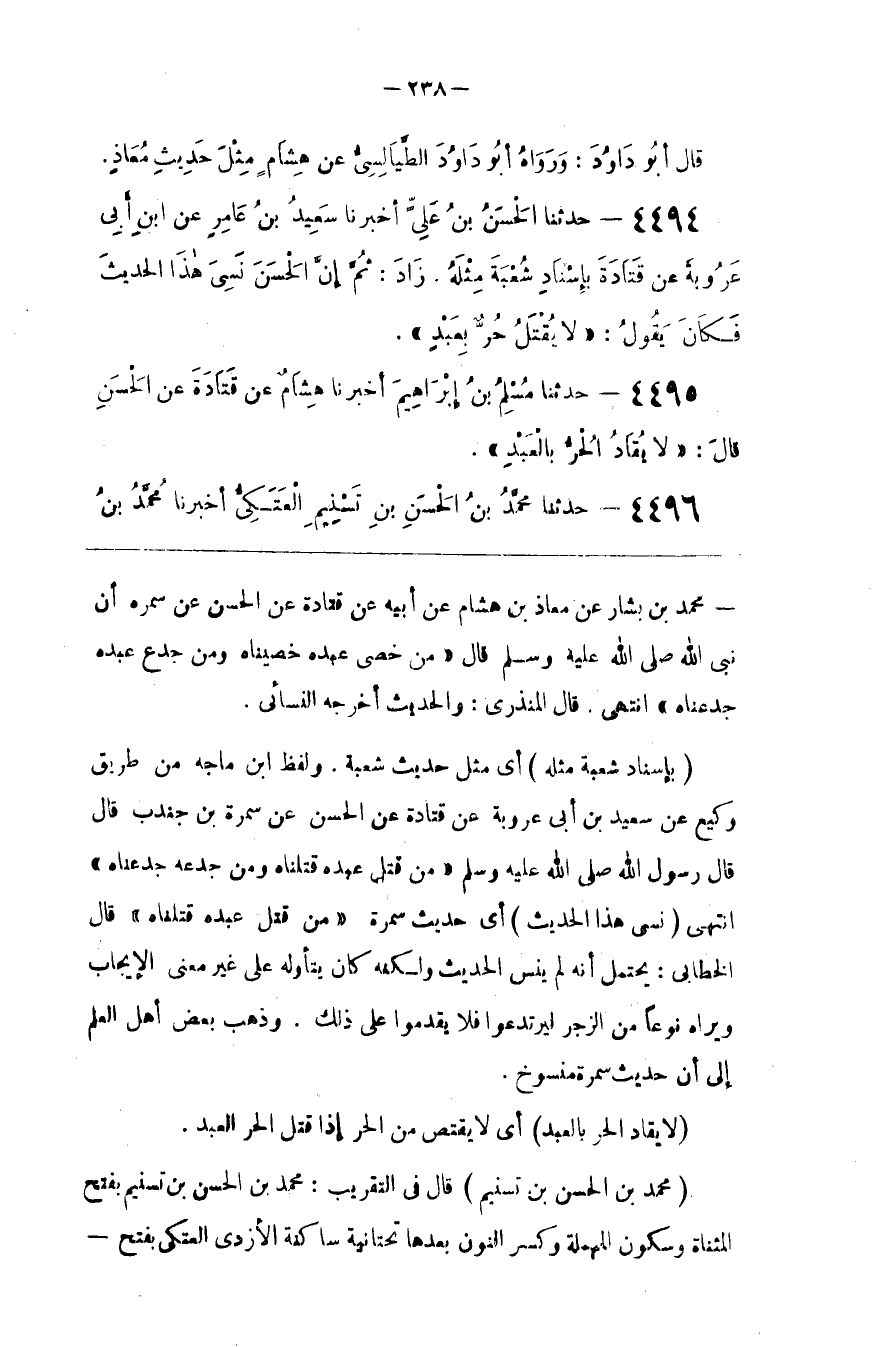 — ٢٣٨ —
قال أبُو دَاوُدَ : وَرَوَاهُ أبُو دَاوُدَ الطَّيَالِسِيُّ عن هِشَامٍ مِثْلَ حَدِيثِ مُعَاذٍ.
٤٤٩٤ — حدثنا الْحَسَنُ بنُ عَلِيٍّ أخبرنا سَعِيدُ بنُ عَامِرٍ عن ابنِ أَبِى
عَرُوبَةَ عن قَتَادَةَ بإِسْنَادِ شُعْبَةَ مِثْلَهُ . زَادَ : ثُمَّ إنَّ الْحَسَنَ نَسِىَ هٰذَا الحديثَ
فَكانَ يَقُولُ : « لا يُقْتَلُ حُرٌّ بِعَبْدٍ » .
٤٤٩٥ — حدثنا مُسْلِمُ بنُ إِبْرَاهِيمَ أخبرنا هِشَامٌ عن قَتَادَةَ عن الْحَسَنِ
قالَ : « لا يُقَادُ الْحُرُّ بالْعَبْدِ » .
٤٤٩٦ — حدثنا محمَّدُ بنُ الْحَسَنِ بنِ تَسْنِيمِ الْعَتَكِيُّ أخبرنا مُحمَّدُ بنُ
— محمد بن بشار عن معاذ بن هشام عن أبيه عن قتادة عن الحسن عن سمره أن
نبى الله صلى الله عليه وسلم قال « من خصى عبده خصيناه ومن جدع عبده
جدعناه » انتهى . قال المنذرى : والحديث أخرجه النسائى .
( بإسناد شعبة مثله ) أى مثل حديث شعبة . ولفظ ابن ماجه من طريق
وكيع عن سعيد بن أبى عروبة عن قتادة عن الحسن عن سمرة بن جندب قال
قال رسول الله صلى الله عليه وسلم « من قتل عبده قتلناه ومن جدعه جدعناه »
انتهى ( نسى هذا الحديث ) أى حديث سمرة « من قتل عبده قتلناه » قال
الخطابى : يحتمل أنه لم ينس الحديث ولكنه كان يتأوله على غير معنى الإيجاب
ويراه نوعاً من الزجر ليرتدعوا فلا يقدموا على ذلك . وذهب بعض أهل العلم
إلى أن حديث سمرة منسوخ .
(لا يقاد الحر بالعبد) أى لا يقتص من الحر إذا قتل الحر العبد .
( محمد بن الحسن بن تسنيم ) قال فى التقريب : محمد بن الحسن بن تسنيم بفتح
المثناة وسكون المهملة وكسر النون بعدها تحتانية ساكنة الأزدى العتكى بفتح —